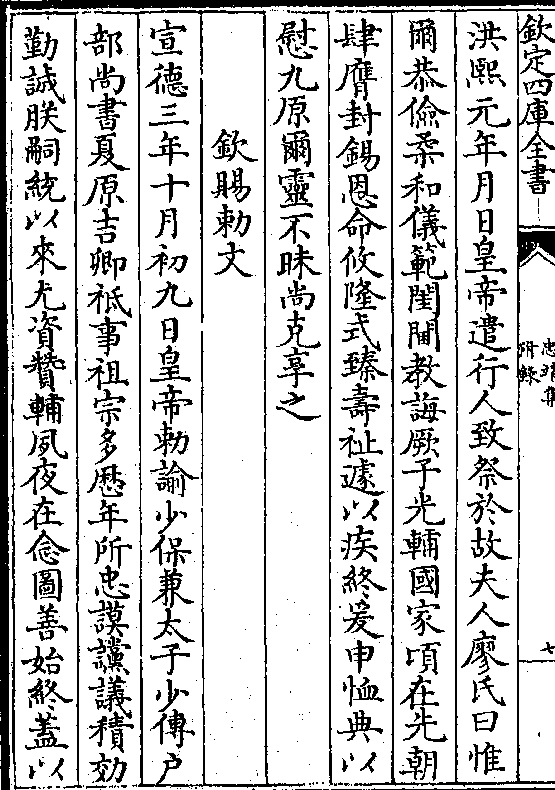 欽定四庫全書
忠靖集
附錄
七
洪熙元年月日皇帝遣行人致祭於故夫人廖氏曰惟
爾恭儉柔和儀範閨閫教誨厥子光輔國家頃在先朝
肆膺封錫恩命攸隆式臻壽祉遽以疾終爰申恤典以
慰九原爾靈不昧尚克享之
欽賜勅文
宣德三年十月初九日皇帝勅諭少保兼太子少傅户
部尚書夏原吉卿祗事祖宗多歴年所忠謨讜議積効
勤誠朕嗣統以來尤資贊輔夙夜在念圖善始終蓋以